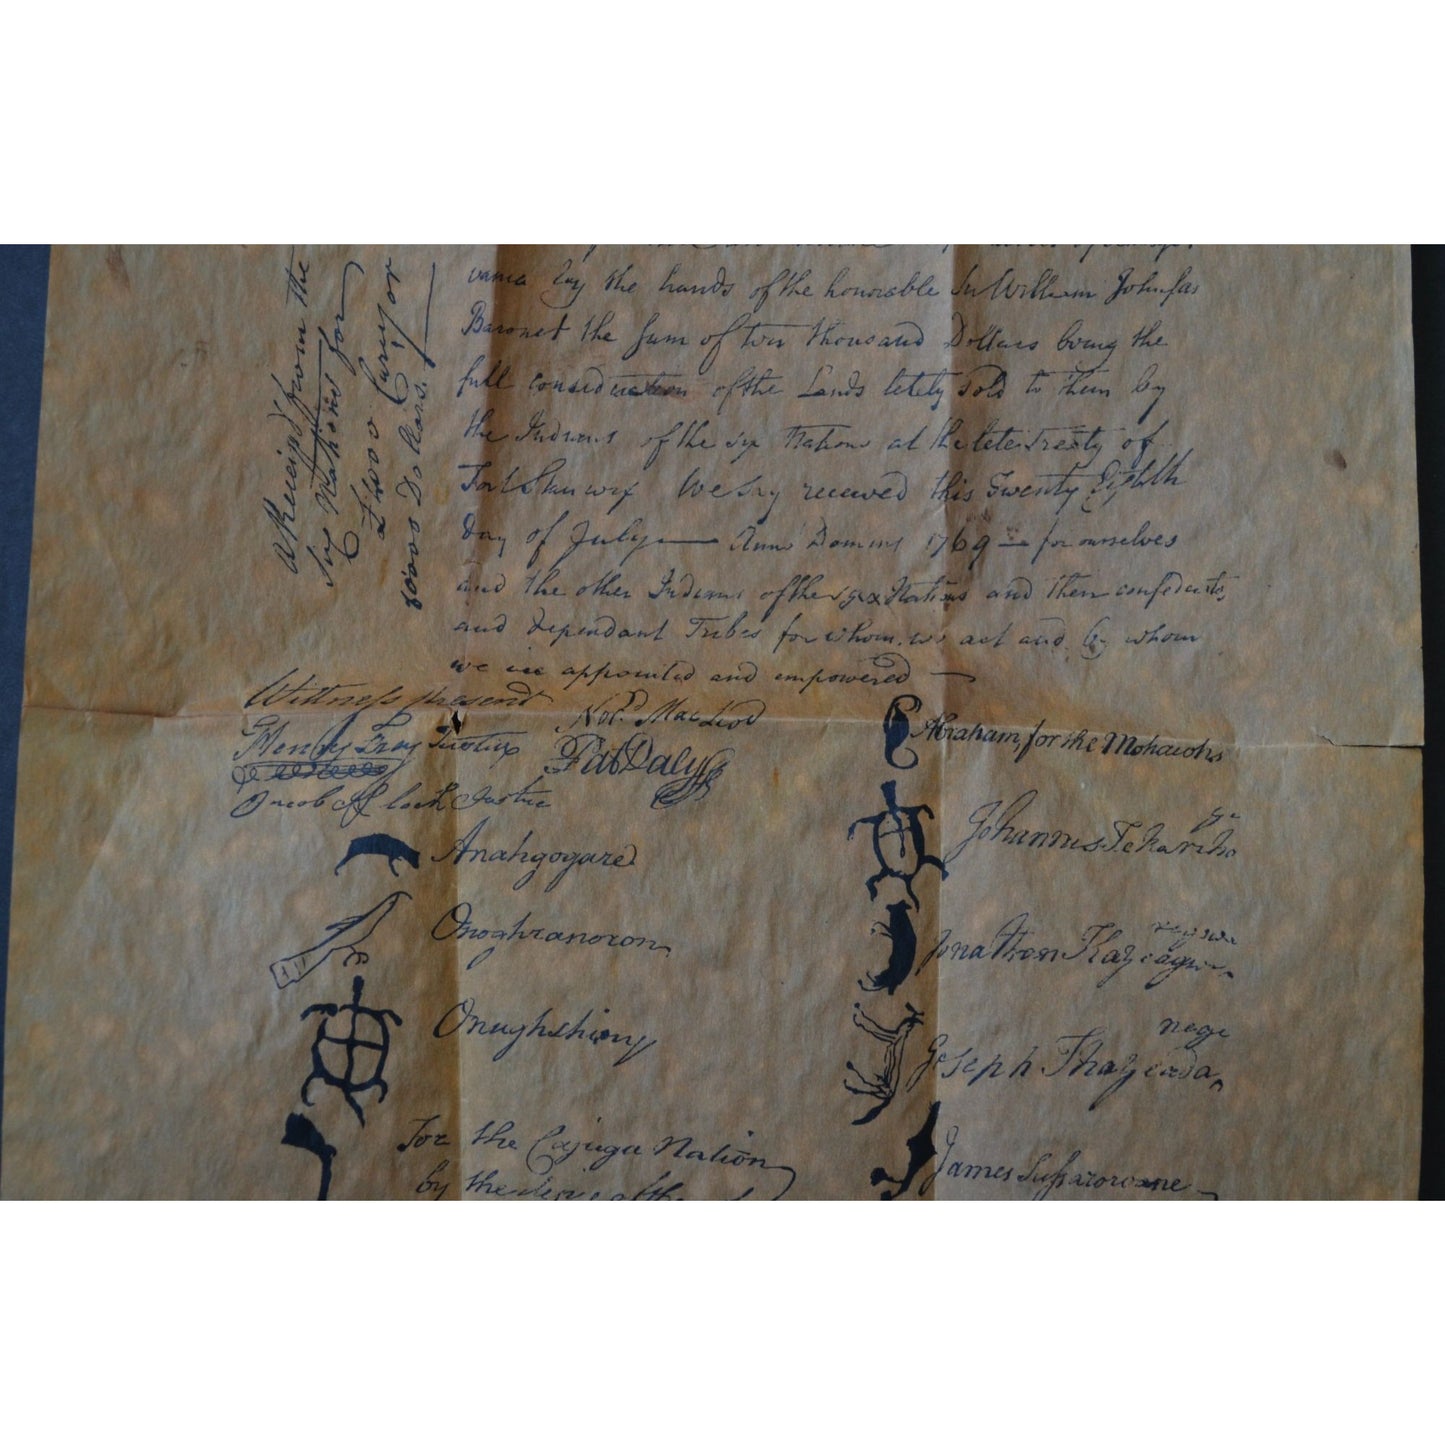 vania by the hands of the honorable Sir William Johnson
Baronet the Sum of ten thousand Dollars being the
full consideration of the Lands lately sold to them by
the Indians of the six Nations at the late treaty of
Fort Stanwix We say received this Twenty Eighth
Day of July — Anno Domini 1769 — for ourselves
and the other Indians of the six Nations and their confederates
and dependant Tribes for whom we act and by whom
we are appointed and empowered —
A Receipt from the
Six Nations for
10000 Dollars.
Wittness present
Henry Fray Justice
Jacob Justice
Nor.d Mac Leod
Pat Daly
Abraham, for the Mohawks
Johannes Tekariho
ga
Anahgogare
Onoghranoron
Jonathon
Onughshiony
Joseph
nege
For the Cajuga Nation
by the of the
James